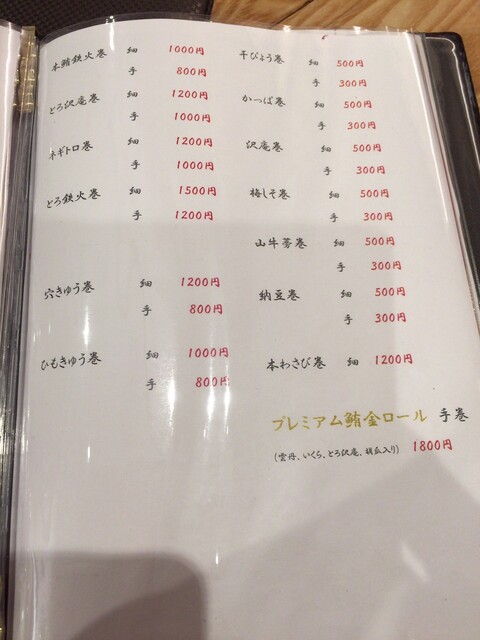 本鮪鉄火巻 細 1000円
手 800円
とろ沢庵巻 細 1200円
手 1000円
ネギトロ巻 細 1200円
手 1000円
とろ鉄火巻 細 1500円
手 1200円
穴きゅう巻 細 1200円
手 800円
ひもきゅう巻 細 1000円
手 800円
干ぴょう巻 細 500円
手 300円
かっぱ巻 細 500円
手 300円
沢庵巻 細 500円
手 300円
梅しそ巻 細 500円
手 300円
山牛蒡巻 細 500円
手 300円
納豆巻 細 500円
手 300円
本わさび巻 細 1200円
プレミアム鮪金ロール 手巻
(雲丹、いくら、とろ沢庵、胡瓜入り) 1800円